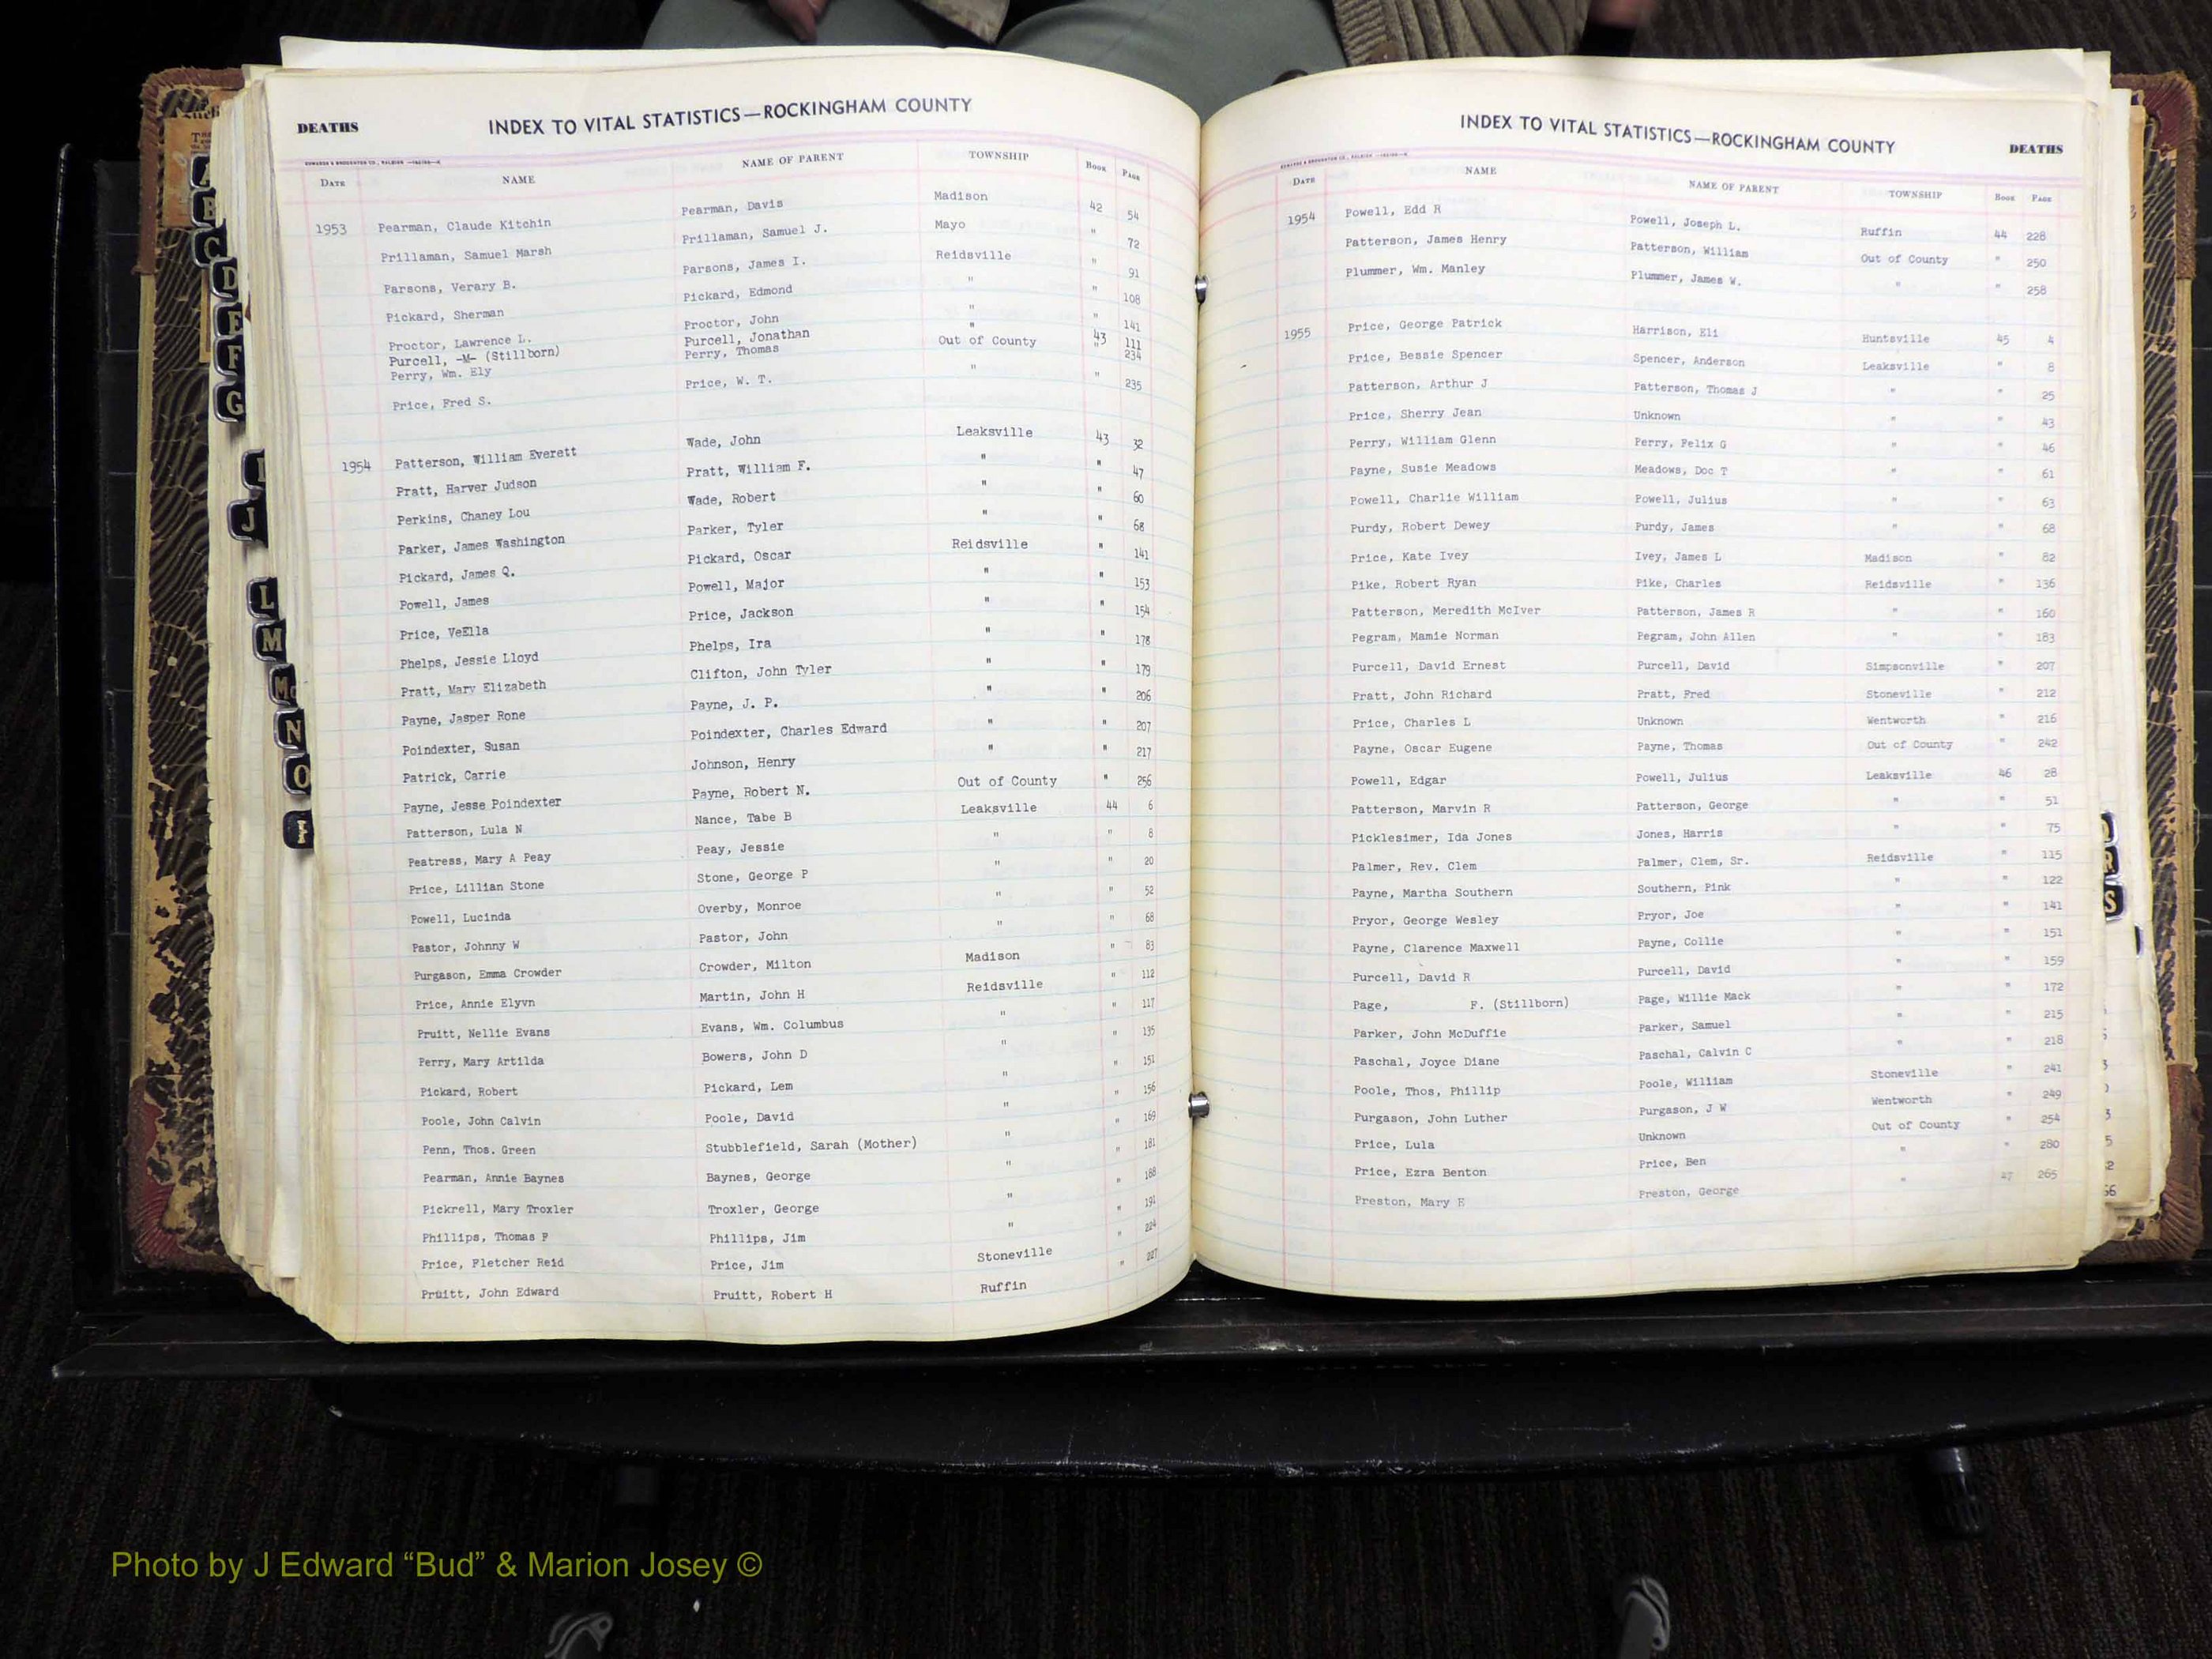 DEATHS
INDEX TO VITAL STATISTICS—ROCKINGHAM COUNTY
DATE NAME NAME OF PARENT TOWNSHIP BOOK PAGE
1953 Pearman, Claude Kitchin Pearman, Davis Madison 42 54
Prillaman, Samuel Marsh Prillaman, Samuel J. Mayo " 72
Parsons, Verary B. Parsons, James I. Reidsville " 91
Pickard, Sherman Pickard, Edmond " " 108
Proctor, Lawrence L. Proctor, John " " 141
Purcell, -M- (Stillborn) Purcell, Jonathan " 43 111
Perry, Wm. Ely Perry, Thomas Out of County " 234
Price, Fred S. Price, W. T. " " 235
1954 Patterson, William Everett Wade, John Leaksville 43 32
Pratt, Harver Judson Pratt, William F. " " 47
Perkins, Chaney Lou Wade, Robert " " 60
Parker, James Washington Parker, Tyler " " 68
Pickard, James Q. Pickard, Oscar Reidsville " 141
Powell, James Powell, Major " " 153
Price, VeElla Price, Jackson " " 154
Phelps, Jessie Lloyd Phelps, Ira " " 178
Pratt, Mary Elizabeth Clifton, John Tyler " " 179
Payne, Jasper Rone Payne, J. P. " " 206
Poindexter, Susan Poindexter, Charles Edward " " 207
Patrick, Carrie Johnson, Henry " " 217
Payne, Jesse Poindexter Payne, Robert N. Out of County " 256
Patterson, Lula N Nance, Tabe B Leaksville 44 6
Peatress, Mary A Peay Peay, Jessie " " 8
Price, Lillian Stone Stone, George P " " 20
Powell, Lucinda Overby, Monroe " " 52
Pastor, Johnny W Pastor, John " " 68
Purgason, Emma Crowder Crowder, Milton Madison " 83
Price, Annie Elyvn Martin, John H Reidsville " 112
Pruitt, Nellie Evans Evans, Wm. Columbus " " 117
Perry, Mary Artilda Bowers, John D " " 135
Pickard, Robert Pickard, Lem " " 151
Poole, John Calvin Poole, David " " 156
Penn, Thos. Green Stubblefield, Sarah (Mother) " " 169
Pearman, Annie Baynes Baynes, George " " 181
Pickrell, Mary Troxler Troxler, George " " 188
Phillips, Thomas F Phillips, Jim " " 191
Price, Fletcher Reid Price, Jim Stoneville " 224
Pruitt, John Edward Pruitt, Robert H Ruffin " 227
INDEX TO VITAL STATISTICS—ROCKINGHAM COUNTY
DEATHS
DATE NAME NAME OF PARENT TOWNSHIP BOOK PAGE
1954 Powell, Edd R Powell, Joseph L. Ruffin 44 228
Patterson, James Henry Patterson, William Out of County " 250
Plummer, Wm. Manley Plummer, James W. " " 258
1955 Price, George Patrick Harrison, Eli Huntsville 45 4
Price, Bessie Spencer Spencer, Anderson Leaksville " 8
Patterson, Arthur J Patterson, Thomas J " " 25
Price, Sherry Jean Unknown " " 43
Perry, William Glenn Perry, Felix G " " 46
Payne, Susie Meadows Meadows, Doc T " " 61
Powell, Charlie William Powell, Julius " " 63
Purdy, Robert Dewey Purdy, James " " 68
Price, Kate Ivey Ivey, James L Madison " 82
Pike, Robert Ryan Pike, Charles Reidsville " 136
Patterson, Meredith McIver Patterson, James R " " 160
Pegram, Mamie Norman Pegram, John Allen " " 183
Purcell, David Ernest Purcell, David Simpsonville " 207
Pratt, John Richard Pratt, Fred Stoneville " 212
Price, Charles L Unknown Wentworth " 216
Payne, Oscar Eugene Payne, Thomas Out of County " 242
Powell, Edgar Powell, Julius Leaksville 46 28
Patterson, Marvin R Patterson, George " " 51
Picklesimer, Ida Jones Jones, Harris " " 75
Palmer, Rev. Clem Palmer, Clem, Sr. Reidsville " 115
Payne, Martha Southern Southern, Pink " " 122
Pryor, George Wesley Pryor, Joe " " 141
Payne, Clarence Maxwell Payne, Collie " " 151
Purcell, David R Purcell, David " " 159
Page, F. (Stillborn) Page, Willie Mack " " 172
Parker, John McDuffie Parker, Samuel " " 215
Paschal, Joyce Diane Paschal, Calvin C " " 218
Poole, Thos, Phillip Poole, William Stoneville " 241
Purgason, John Luther Purgason, J W Wentworth " 249
Price, Lula Unknown Out of County " 254
Price, Ezra Benton Price, Ben " " 280
Preston, Mary E Preston, George " 47 265
B
C
D
E
F
G
I
J
L
M
Mc
N
O
P
R
S
Photo by J Edward “Bud” & Marion Josey ©